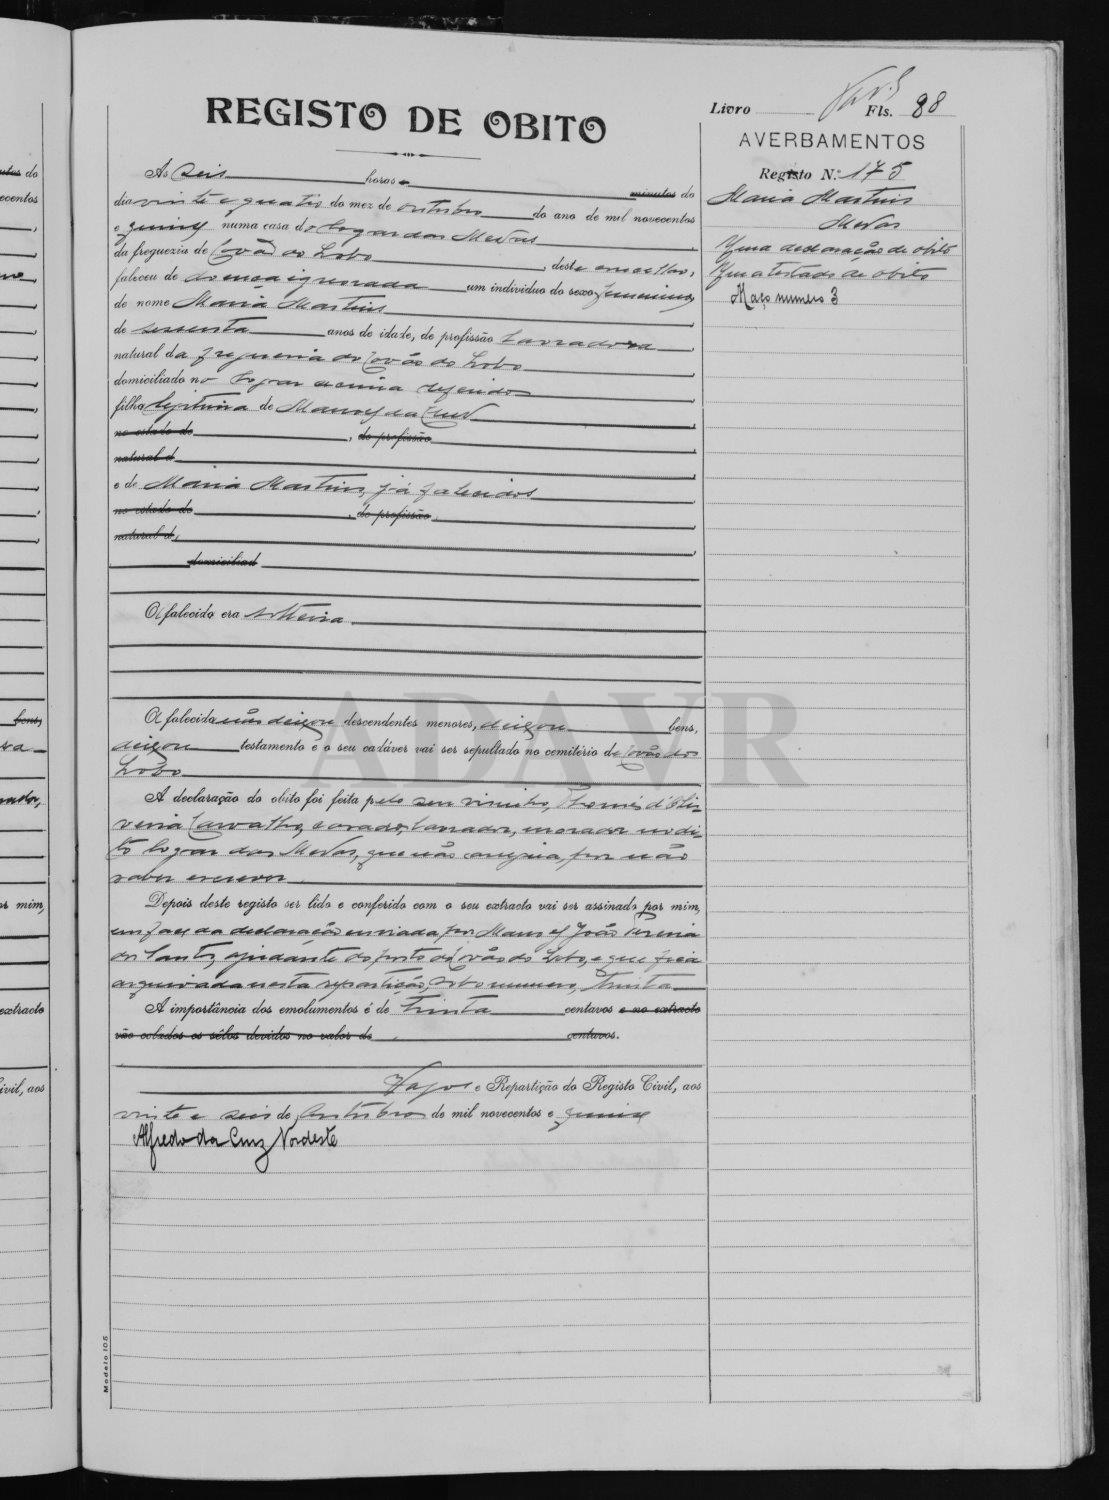 Livro Fls. 88
REGISTO DE OBITO
AVERBAMENTOS
Registo N.º 175
Maria Martins
Medas
Uma declaração de obito
Um atestado de obito
Maço numero 3
As seis horas minutos do
dia vinte e quatro do mez de outubro do ano de mil novecentos
e quinze numa casa do logar das Medas
da freguezia de Covão do Lobo, deste concelho,
faleceu de doença ignorada um individuo do sexo femenino
de nome Maria Martins
de sessenta anos de idade, de profissão lavradora
natural da freguesia do Covão do Lobo
domiciliado no logar acima referido
filha legitima de Manoel da Cruz
no estado de , de profissão
natural d
e de Maria Martins, já falecidos
no estado de , de profissão
natural d
domiciliad
A falecida era solteira
A falecida não deixou descendentes menores, deixou bens,
deixou testamento e o seu cadáver vai ser sepultado no cemitério de Covão do
Lobo
A declaração do obito foi feita pelo seu visinho, Thomé d'Oli-
veira Carvalho, casado, lavrador, morador no di-
to logar das Medas, que não assigna, por não
saber escrever
Depois deste registo ser lido e conferido com o seu extracto vai ser assinado por mim,
em face da declaração enviada por Manoel João
dos Santos, ajudante do posto do Covão do Lobo, e que fica
arquivada nesta repartição, sob o numero, trinta
A importância dos emolumentos é de trinta centavos e no extracto
vão colados os sêlos devidos no valor de centavos.
Vagos e Repartição do Registo Civil, aos
vinte e seis de outubro de mil novecentos e quinze
Alfredo da Cruz Nordeste
Modelo 105
ADAVR